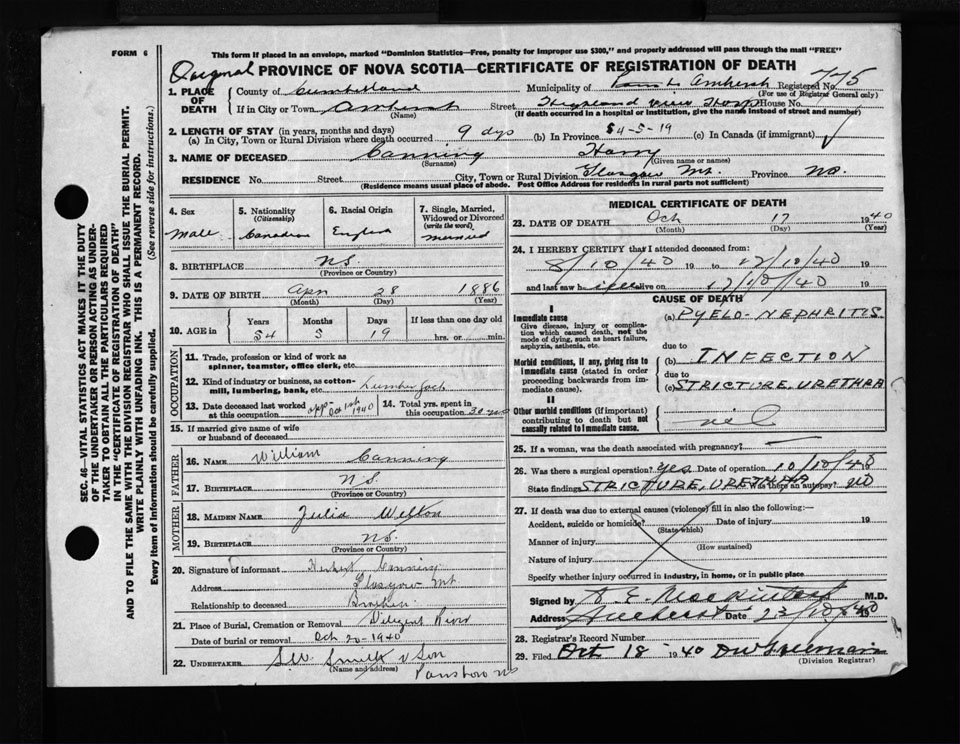 FORM 6
This form if placed in an envelope, marked "Dominion Statistics—Free, penalty for improper use $300," and properly addressed will pass through the mail "FREE"
Original PROVINCE OF NOVA SCOTIA—CERTIFICATE OF REGISTRATION OF DEATH
1. PLACE OF DEATH County of Cumberland Municipality of Amherst Registered No. 775
(For use of Registrar General only)
If in City or Town Amherst Street Highland View Hosp House No.
(Name) (If death occurred in a hospital or institution, give the name instead of street and number)
2. LENGTH OF STAY (in years, months and days)
(a) In City, Town or Rural Division where death occurred 9 dys (b) In Province 54-5-19 (c) In Canada (if immigrant)
3. NAME OF DECEASED Canning Harry
(Surname) (Given name or names)
RESIDENCE No. Street City, Town or Rural Division Glasgow Mt. Province NS.
(Residence means usual place of abode. Post Office Address for residents in rural parts not sufficient)
4. Sex Male
5. Nationality (Citizenship) Canadian
6. Racial Origin English
7. Single, Married, Widowed or Divorced (write the word) Married
8. BIRTHPLACE NS.
(Province or Country)
9. DATE OF BIRTH Apr 28 1886
(Month) (Day) (Year)
10. AGE in Years Months Days If less than one day old
54 5 19 hrs. or min.
OCCUPATION
11. Trade, profession or kind of work as spinner, teamster, office clerk, etc.
12. Kind of industry or business, as cotton-mill, lumbering, bank, etc. Lumber Jack
13. Date deceased last worked at this occupation app- Oct 1st 1940 14. Total yrs. spent in this occupation 30 years
15. If married give name of wife or husband of deceased
FATHER
16. NAME William Canning
17. BIRTHPLACE NS.
(Province or Country)
MOTHER
18. MAIDEN NAME Julia Welton
19. BIRTHPLACE NS.
(Province or Country)
20. Signature of informant Herbert Canning
Address Glasgow Mt
Relationship to deceased Brother
21. Place of Burial, Cremation or Removal Diligent River
Date of burial or removal Oct 20-1940
22. UNDERTAKER Smith & Son
(Name and address) Parrsboro NS
MEDICAL CERTIFICATE OF DEATH
23. DATE OF DEATH Oct 17 1940
(Month) (Day) (Year)
24. I HEREBY CERTIFY that I attended deceased from:
8/10/40 19 to 17/10/40 19
and last saw h alive on 17/10/40 19
CAUSE OF DEATH
I
Immediate cause
Give disease, injury or complication which caused death, not the mode of dying, such as heart failure, asphyxia, asthenia, etc.
(a) PYELO-NEPHRITIS
due to
Morbid conditions, if any, giving rise to immediate cause (stated in order proceeding backwards from immediate cause).
(b) INFECTION
due to
(c) STRICTURE, URETHRA
II
Other morbid conditions (if important) contributing to death but not causally related to immediate cause.
nil
25. If a woman, was the death associated with pregnancy?
26. Was there a surgical operation? Yes Date of operation 10/10/40
State findings STRICTURE, URETHRA Was there an autopsy? no
27. If death was due to external causes (violence) fill in also the following:—
Accident, suicide or homicide? Date of injury 19
(State which)
Manner of injury
(How sustained)
Nature of injury
Specify whether injury occurred in industry, in home, or in public place
Signed by A. E. Mackintosh M.D.
Address Amherst Date 23/10/40 19
28. Registrar's Record Number
29. Filed Oct 18 - 1940
(Division Registrar)
SEC. 46—VITAL STATISTICS ACT MAKES IT THE DUTY
OF THE UNDERTAKER OR PERSON ACTING AS UNDER-
TAKER TO OBTAIN ALL THE PARTICULARS REQUIRED
IN THE "CERTIFICATE OF REGISTRATION OF DEATH"
AND TO FILE THE SAME WITH THE DIVISION REGISTRAR WHO SHALL ISSUE THE BURIAL PERMIT.
WRITE PLAINLY WITH UNFADING INK. THIS IS A PERMANENT RECORD.
Every item of Information should be carefully supplied. (See reverse side for instructions.)